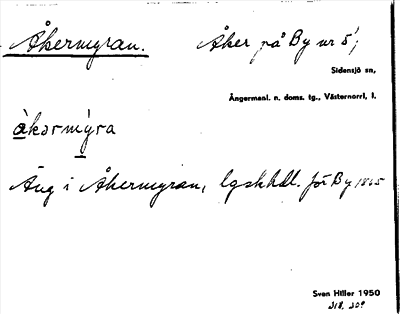 Åkermyran. Åker på By nr 5;
Sidensjö sn,
Ångermanl. n. doms. tg., Västernorrl. l.
àkərmýra
Äng i Åkermyran, lgskhdl. för By 1865
Sven Hiller 1950
218, 209